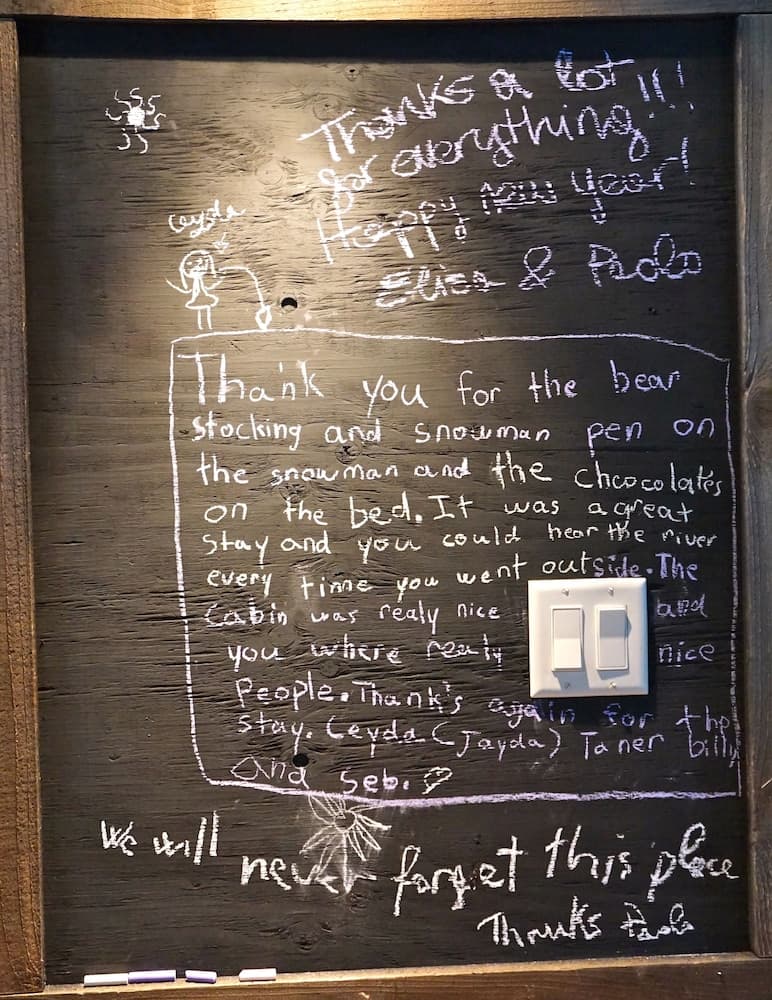 Thanks a lot!!!
for everything!
Happy New Year!
Elisa & Paolo
Ceyda
Thank you for the bear
stocking and snowman pen on
the snowman and the chcocolates
on the bed. It was a great
stay and you could hear the river
every time you went outside. The
Cabin was realy nice and
you where realy nice
People. Thank's again for the
stay. Ceyda (Jayda) Taner billy
and Seb.
We will never forget this place
Thanks Paolo